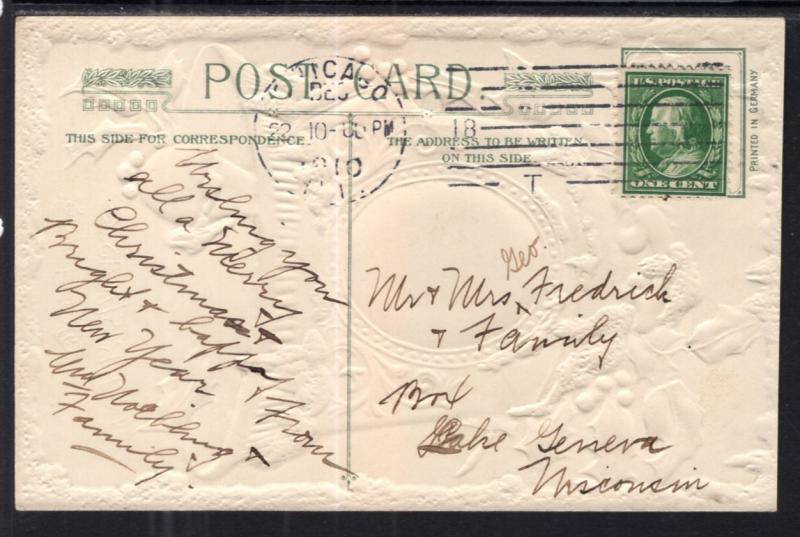 POST CARD
THIS SIDE FOR CORRESPONDENCE.
THE ADDRESS TO BE WRITTEN
ON THIS SIDE.
CHICAGO
DEC
22 10-
PM
1910
ILL.
18
T
U.S. POSTAGE
ONE CENT
PRINTED IN GERMANY
Wishing you
all a Merry
Christmas &
Bright & happy
New Year. From
Family.
Geo.
Mr & Mrs Fredrick
& Family
Box
Lake Geneva
Wisconsin